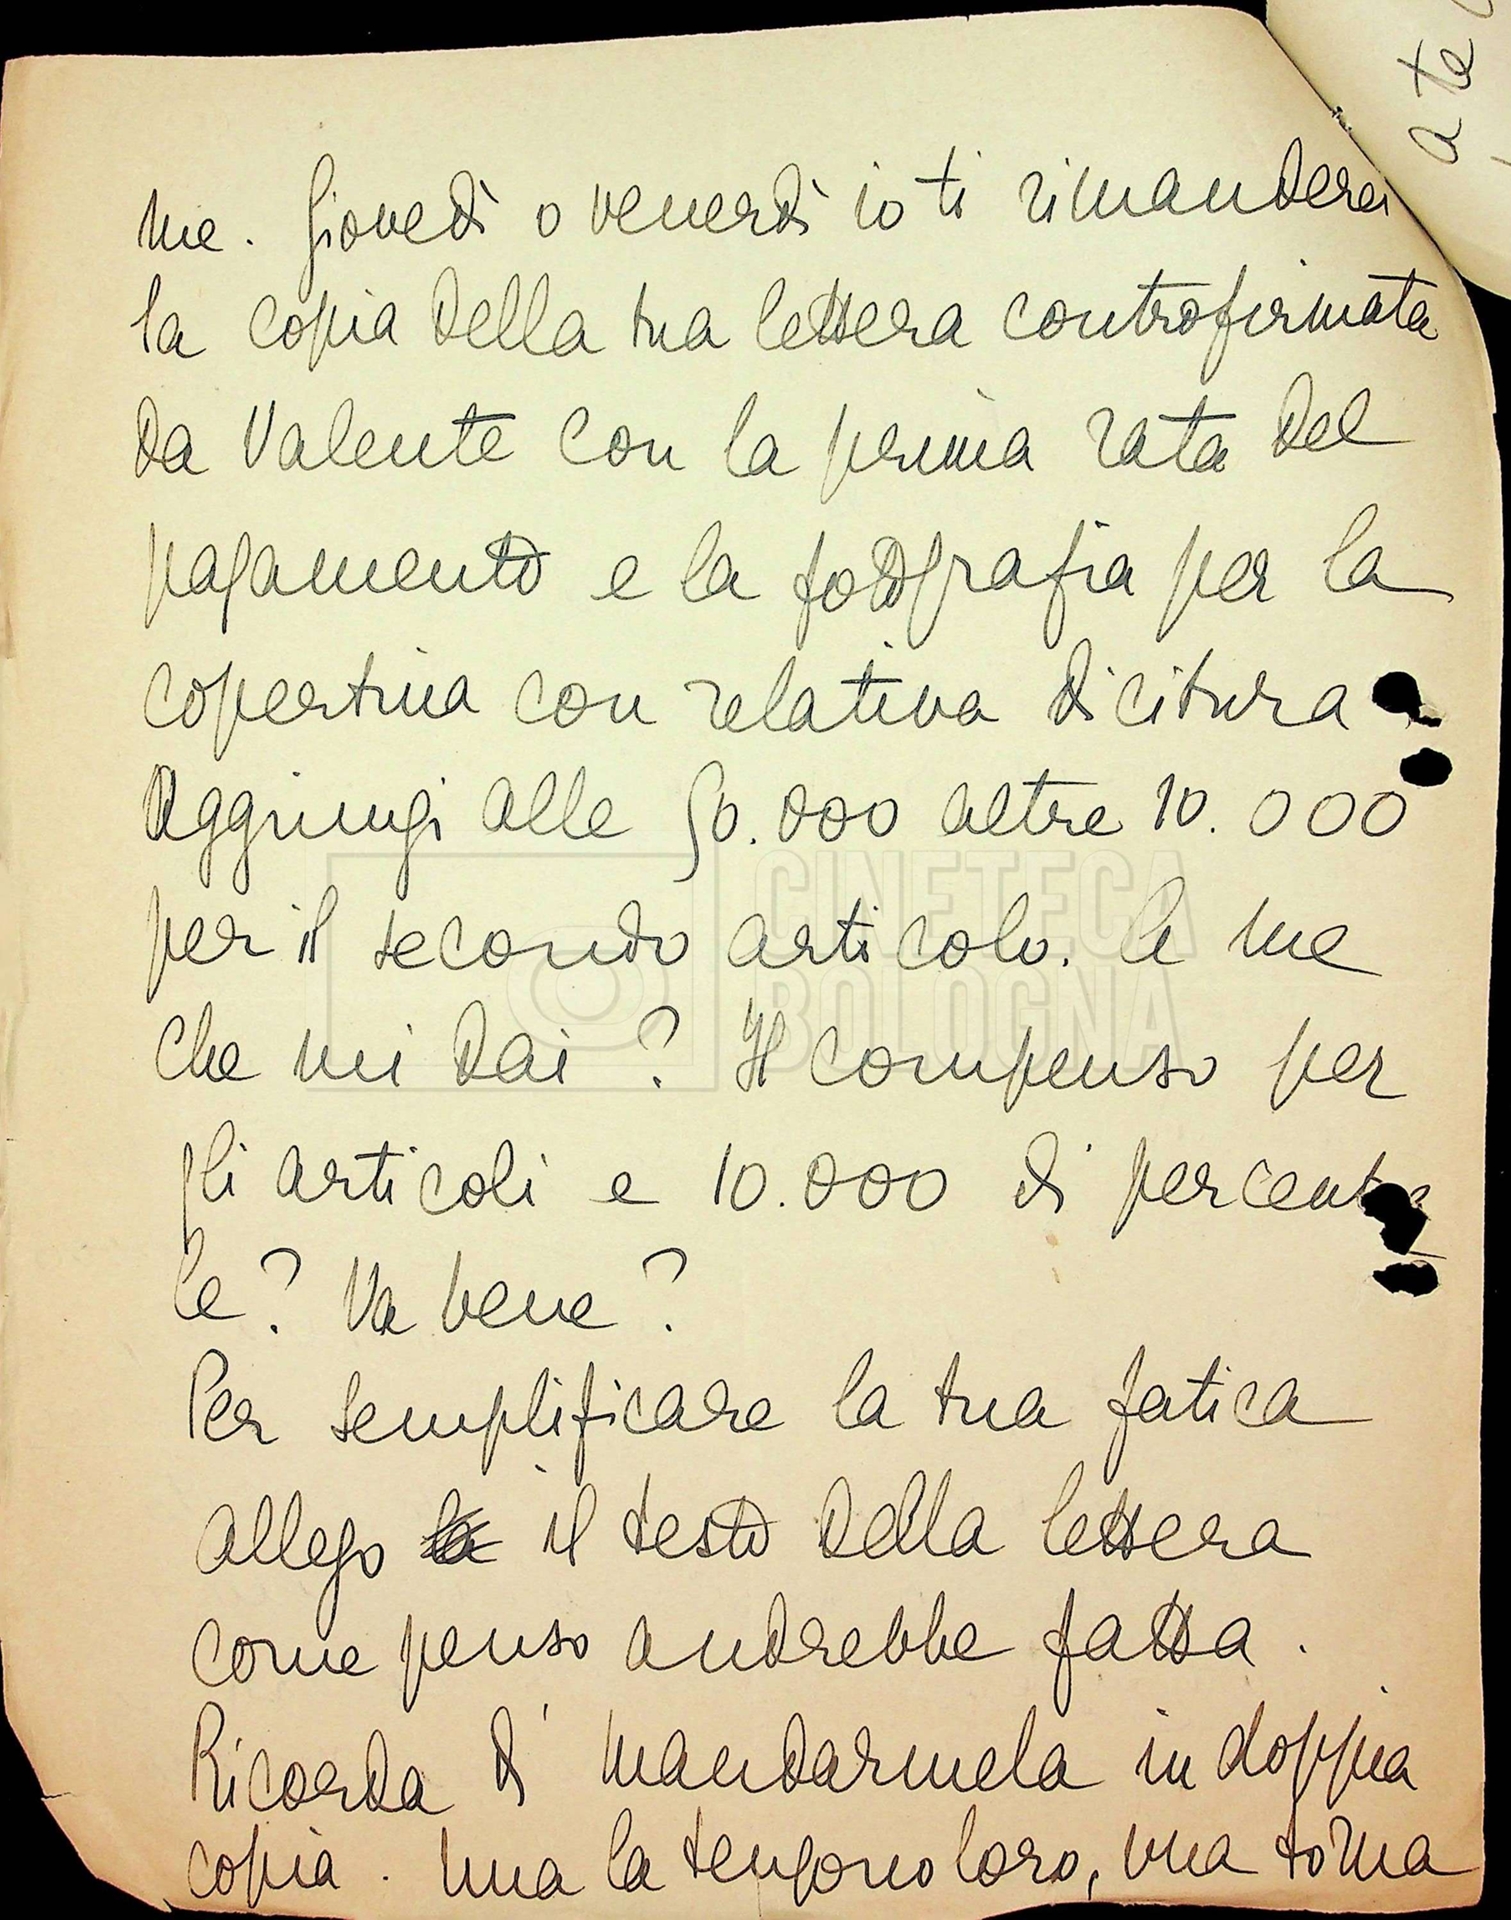 me. Giovedì o venerdì io ti rimanderei
la copia della tua lettera controfirmata
da Valente con la prima rata del
pagamento e la fotografia per la
copertina con relativa dicitura
Aggiungi alle 50.000 altre 10.000
per il secondo articolo. A me
che mi dai? Il compenso per
gli articoli e 10.000 di percentua
le? Va bene?
Per semplificare la tua fatica
allego il testo della lettera
come penso andrebbe fatta.
Ricorda di mandarmela in doppia
copia. Una la tengono loro, una torna
a te
CINETECA
BOLOGNA